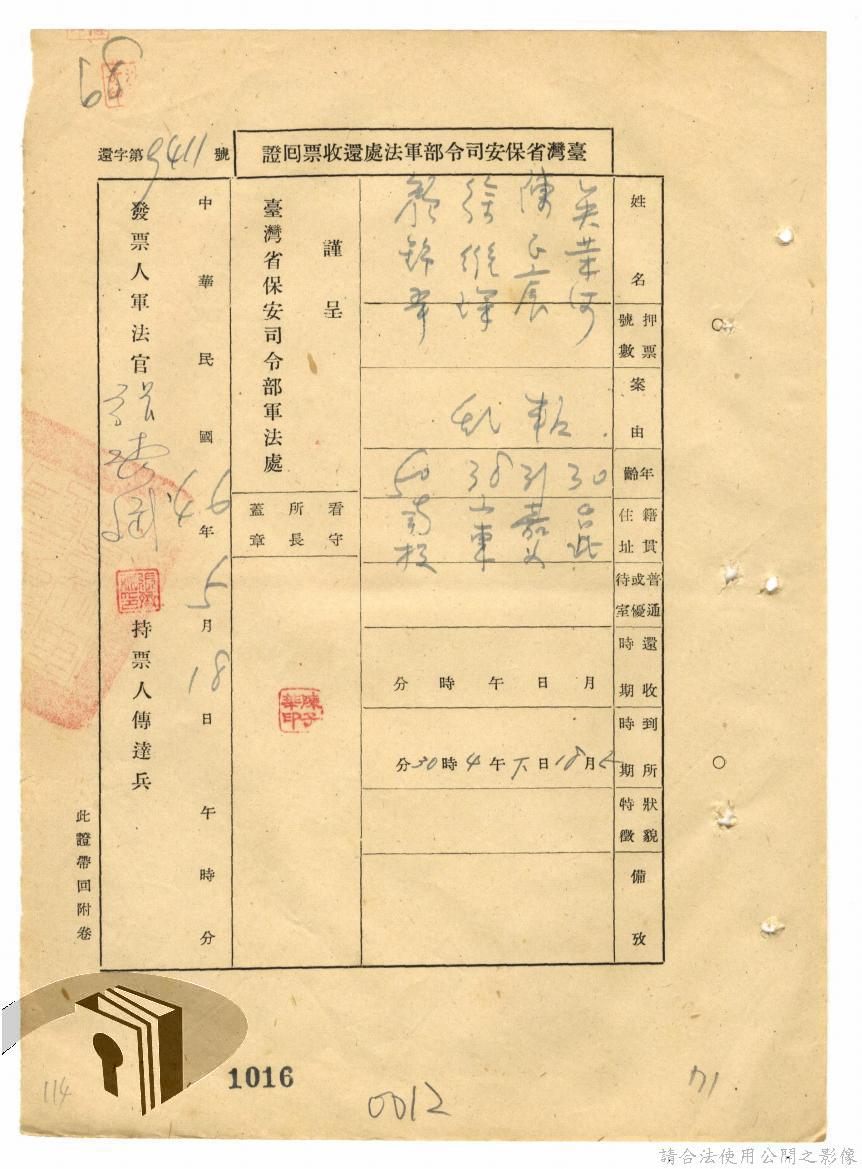 臺灣省保安司令部軍法處還收票囘證
還字第9411號
姓名
吳榮河
陳正宸
徐維琛
顏錦華
押票號數
案由
叛亂
年齡
30
31
38
50
籍貫住址
台北
嘉义
山東
南投
普通或優待室
還收時期
月 日 午 時 分
到所時期
5月18日下午4時30分
狀貌特徵
備攷
謹呈
臺灣省保安司令部軍法處
看守所所長蓋章
陳子華印
中華民國46年5月18日 午 時 分
發票人軍法官
持票人傳達兵
此證帶回附卷
68
1016
0012
114
71
請合法使用公開之影像